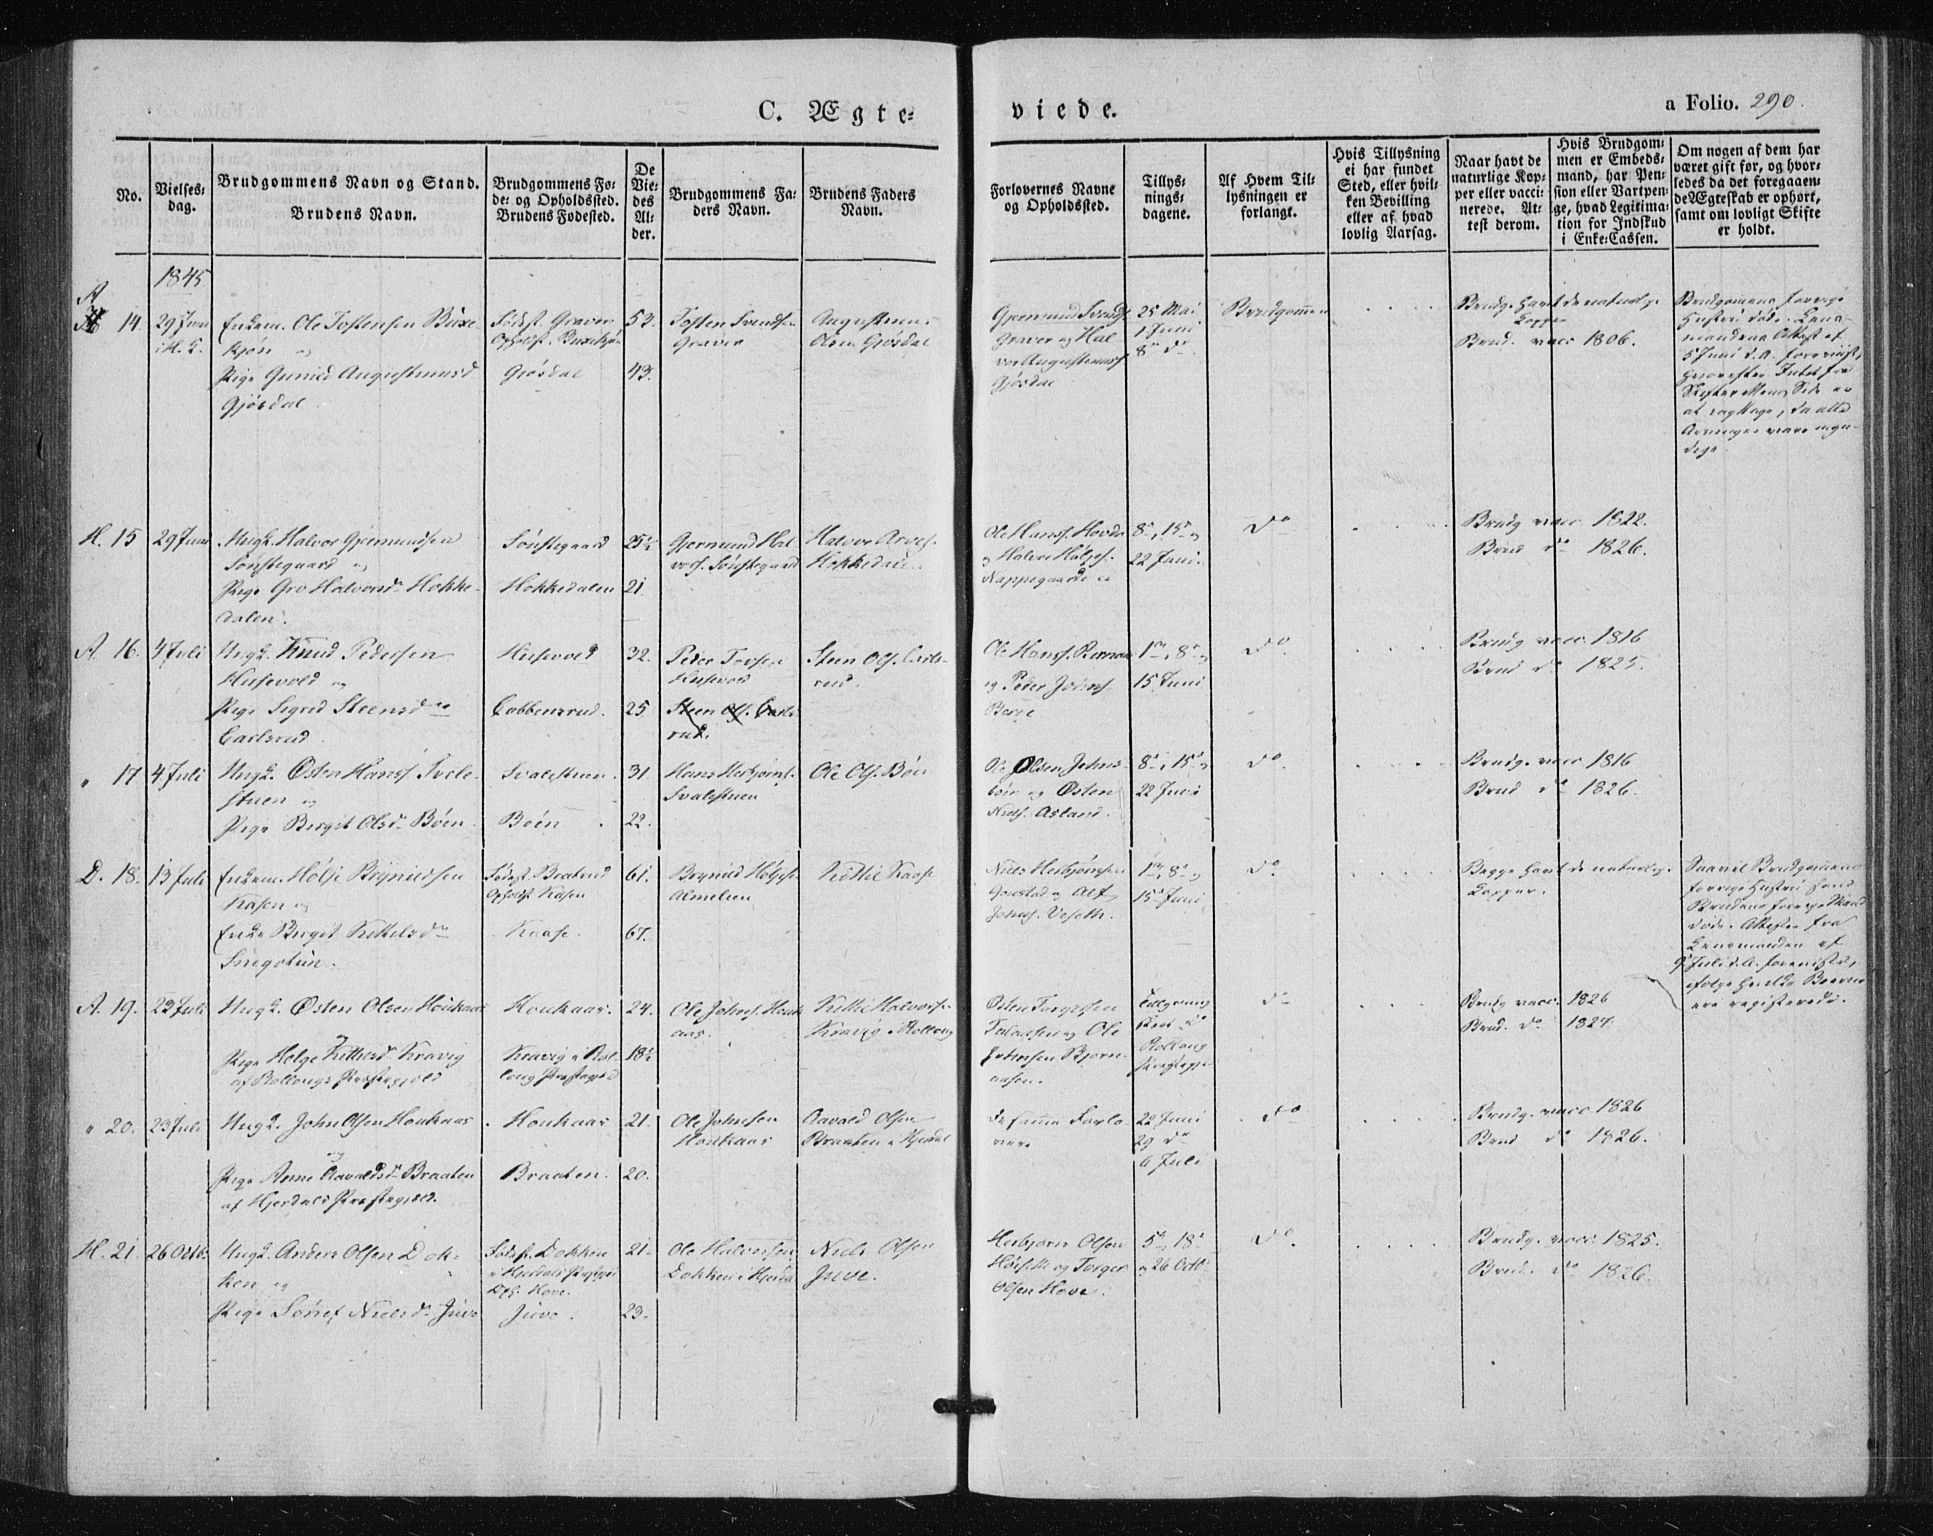 C. Ægte-
viede.
a Folio. 290.
No.
Vielses-
dag.
Brudgommens Navn og Stand.
Brudens Navn.
Brudgommens Fø-
de- og Opholdssted.
Brudens Fødested.
De
Vie-
des
Al-
der.
Brudgommens Fa-
ders Navn.
Brudens Faders
Navn.
Forlovernes Navne
og Opholdssted.
Tillys-
nings-
dagene.
Af Hvem Til-
lysningen er
forlangt.
Hvis Tillysning
ei har fundet
Sted, eller hvil-
ken Bevilling
eller af hvad
lovlig Aarsag.
Naar havt de
naturlige Kop-
per eller vacci-
nerede. At-
test derom.
Hvis Brudgom-
men er Embeds-
mand, har Pen-
sion eller Vartpen-
ge, hvad Legitima-
tion for Indskud
i Enke-Cassen.
Om nogen af dem har
været gift før, og hvor-
ledes da det foregaaen-
de Ægteskab er ophørt,
samt om lovligt Skifte
er holdt.
1845
A
14. 29 Juni
i H. K.
Enkem. Ole Tostensen Buxe-
kjøn og
Pige Gunild Augustinusd
Gjøsdal.
Fødest. Graver
Opholdst. Buxekjøn
Gjøsdal
53.
43.
Tosten Svends.
Graver
Augustinus
Olsen Gjøsdal
Gjermund Svends.
Graver og Hal
vor Augustinuss.
Gjøsdal
25 Mai
1 Juni
8de do
Brudgommen
Brudg. havt de naturlige
Kopper
Brud. vacc 1806.
Brudgommens forrige
Hustru død. Lens-
mandens Attest af
5 Juni d. A. forevist,
hvorefter Intet fra
Skifterettens Side er
at iagttage, da alle
Arvinger vare myn-
dige.
H. 15 29 Juni
Ungk. Halvor Gjermundsen
Sønstegaard og
Pige Gro Halvorsd. Hokke-
dalen.
Sønstegaard
Hokkedalen
25½
21
Gjermund Hal
vors. Sønstegaard
Halvor Arves.
Hokkedalen
Ole Hanss. Hovde
og Halvor Helges.
Nappegaarden
8de, 15de og
22 Juni.
do
Brudg vacc. 1822.
Brud do 1826.
A. 16. 4 Juli
Ungk. Knud Pedersen
Husevold og
Pige Sigrid Steensdtr
Carlsrud.
Husevold
Cobbensrud.
32.
25
Peder Torsen
Husevold
Steen Ols. Carls-
rud.
Steen Ols. Carls-
rud.
Ole Hanss.
og Peder Johns.
Berge
1ste, 8de og
15 Juni
do
Brudg vacc. 1816
Brud do 1825.
" 17 4 Juli
Ungk. Østen Hans. Svale-
stuen og
Pige Bergit Olsd. Bøen.
Svalestuen.
Bøen
31.
22.
Hans Herbjørns.
Svalestuen
Ole Ols. Bøen
Ole Olsen Johns-
bøen og Østen
Niels. Aasland.
8de, 15de
22 Juni
do.
Brudg. vacc 1816
Brud do 1826.
D. 18. 13 Juli
Enkem. Hølje Brynildsen
Kasen og
Enke Bergit Kittelsdtr
Snegotun.
Fødest. Braterud
Opholdst Kasen
Kaase.
61.
67.
Brynild Høljes.
Almelien
Kittil Kaase
Niels Herbjørnsen
Gaustad og Alf
Johns. Veseth.
1ste, 8de og
15de Juni
do.
Begge havt de naturlige
Kopper.
Saavel Brudgommens
forrige Hustru som
Brudens forrige Mand
døde. Attester fra
Lensmanden af
9 Juli d. A. foreviste,
ifølge hvilke Boerne
ere registerede.
A. 19. 23 Juli
Ungk. Østen Olsen Houkaas
og
Pige Helge Kittilsd. Kravig
af Rollougs Præstegjeld
Houkaas.
Kravig i Rol-
loug Præstegjeld
24.
18½
Ole Johns. Houk
aas.
Kittil Halvorsen
Kravig i Rolloug
Østen Torgersen
og Ole
Johnsen Bjørn-
aasen.
Tillysning
skeet i
Rolloug
Præstegjeld
do
Brudg vacc. 1826
Brud. do 1827.
" 20. 23 Juli
Ungk. John Olsen Houkaas
og
Pige Anne Aavaldsd. Braaten
af Hjerdals Præstegjeld.
Houkaas
Braaten.
21.
20.
Ole Johnsen
Houkaas
Aavald Olsen
Braaten i Hjerdal
De samme Forlo
vere
22 Juni
29 do
6 Juli
do
Brudg. vacc 1826
Brud do 1826.
H. 21. 26 Octb.
Ungk. Anders Olsen Dok-
ken og
Pige Sønef Nielsd. Juve
Fødest. Dokken
i Hjerdals Præstegjeld
Oph. Hove.
Juve.
21.
23.
Ole Halvorsen
Dokken i Hjerdal
Niels Olsen
Juve.
Herbjørn Olsen
og Torger
Olsen Hove.
5te, 18de
og 26 Octb.
do.
Brudg. vacc. 1825.
Brud. do 1826.